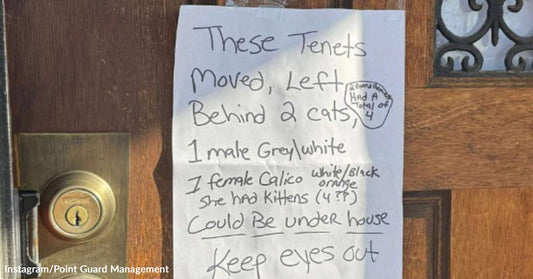 These Tenets
Moved, Left
Behind 2 cats,
2 Found Home
HAD A
Total of
4
1 male Grey/white
1 female Calico white/Black
orange
She HAD Kittens (4??)
Could Be under house
Keep eyes out
Instagram/Point Guard Management